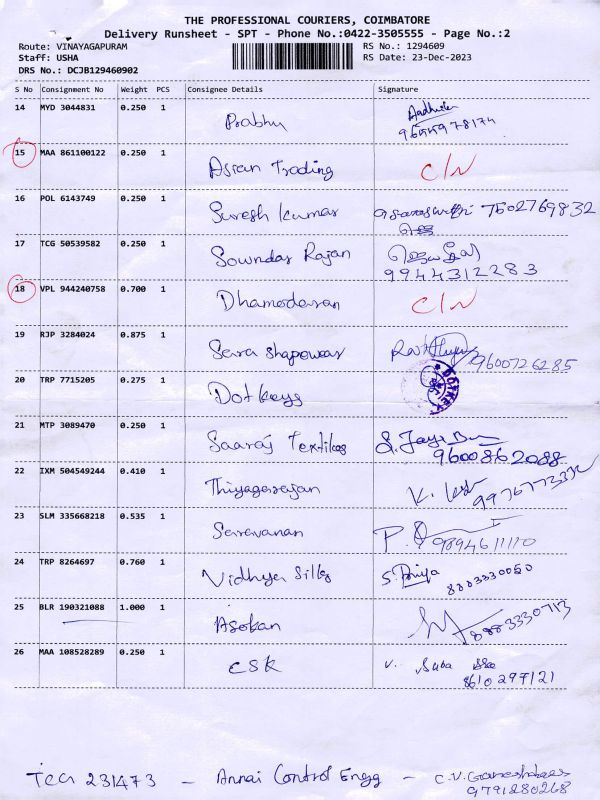 THE PROFESSIONAL COURIERS, COIMBATORE
Delivery Runsheet - SPT - Phone No.:0422-3505555 - Page No.:2
Route: VINAYAGAPURAM RS No.: 1294609
Staff: USHA RS Date: 23-Dec-2023
DRS No.: DCJB129460902
S No Consignment No Weight PCS Consignee Details Signature
14 MYD 3044831 0.250 1 Prabhu
15 MAA 861100122 0.250 1 Asian Trading C/N
16 POL 6143749 0.250 1 Suresh kumar 7502769832
17 TCG 50539582 0.250 1 Soundar Rajan
9944312283
18 VPL 944240758 0.700 1 Dhamodaran C/N
19 RJP 3284024 0.875 1 Sara shapewear 9600726285
20 TRP 7715205 0.275 1 Dot keys
21 MTP 3089470 0.250 1 Saaraj Textiles
9600862088
22 IXM 504549244 0.410 1 Thiyagarajan
23 SLM 335668218 0.535 1 Saravanan 9894611110
24 TRP 8264697 0.760 1 Vidhya Silks S. Priya
8883330050
25 BLR 190321088 1.000 1 Asokan 8883330713
26 MAA 108528289 0.250 1 CSK V. Suba
8610297121
TCG 231473 - Annai Control Engg - C.V.
9791280268